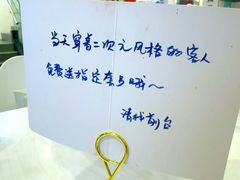 当天穿着二次元风格的客人
免费送指定东马哦～
请找前台